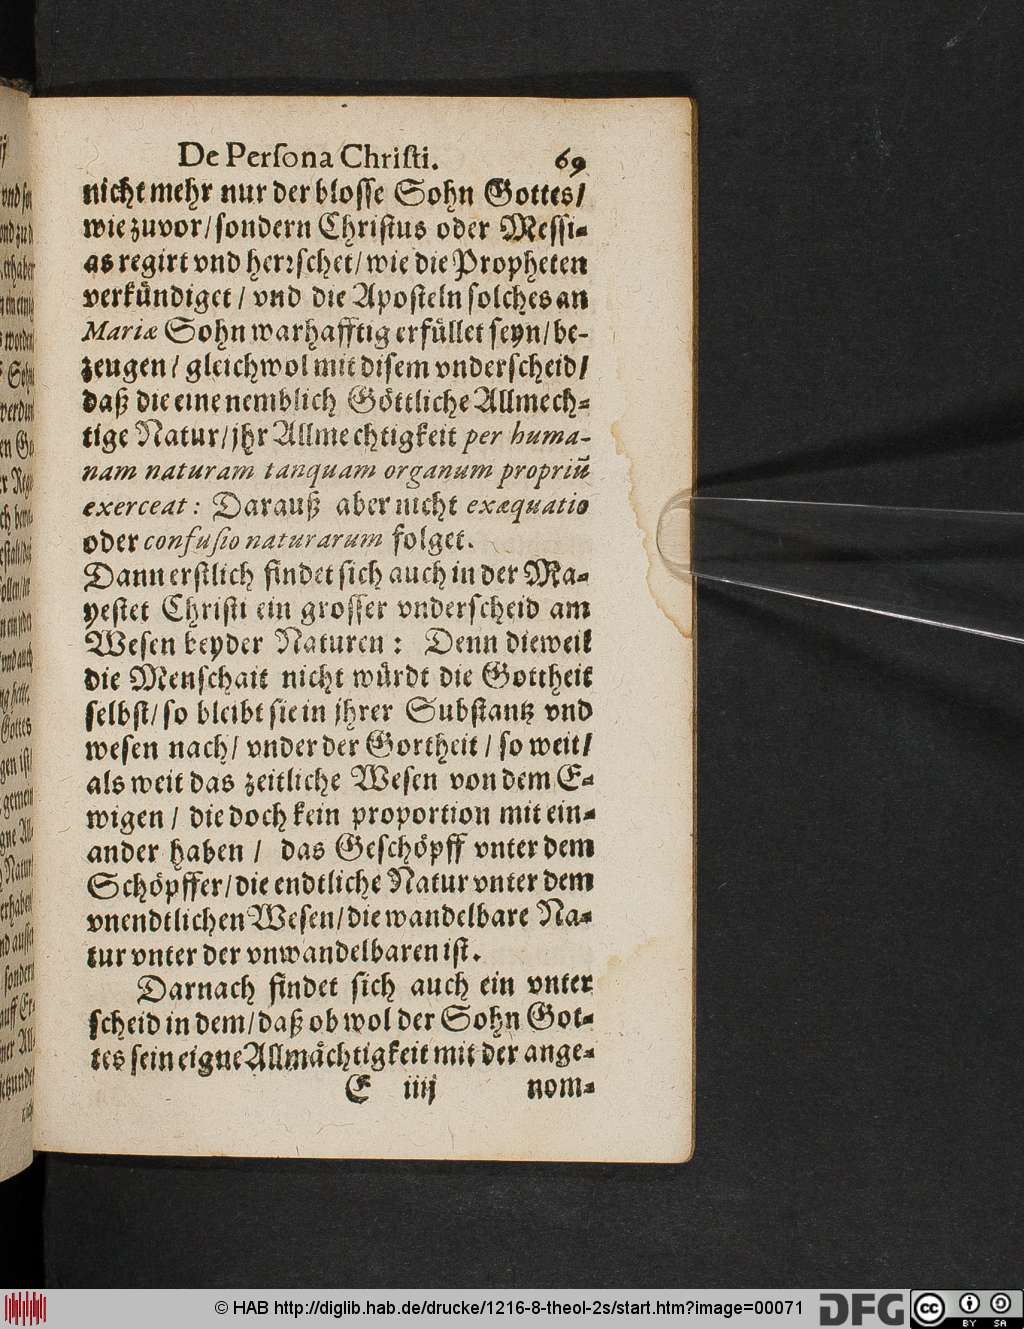 De Persona Christi. 69
nicht mehr nur der blosse Sohn Gottes/
wie zuvor/sondern Christus oder Messi-
as regirt vnd herrschet/wie die Propheten
verkündiget/ vnd die Aposteln solches an
Mariæ Sohn warhafftig erfüllet seyn/be-
zeugen/ gleichwol mit disem vnderscheid/
daß die eine nemblich Göttliche Allmech-
tige Natur/jhr Allmechtigkeit per huma-
nam naturam tanquam organum propriū
exerceat: Darauß aber nicht exæquatio
oder confusio naturarum folget.
Dann erstlich findet sich auch in der Ma-
yestet Christi ein grosser vnderscheid am
Wesen beyder Naturen: Denn dieweil
die Menschait nicht würdt die Gottheit
selbst/ so bleibt sie in jhrer Substantz vnd
wesen nach/ vnder der Gortheit/ so weit/
als weit das zeitliche Wesen von dem E-
wigen/ die doch kein proportion mit ein-
ander haben/ das Geschöpff vnter dem
Schöpffer/die endtliche Natur vnter dem
vnendtlichen Wesen/die wandelbare Na-
tur vnter der vnwandelbaren ist.
Darnach findet sich auch ein vnter
scheid in dem/daß ob wol der Sohn Got-
tes sein eigne Allmächtigkeit mit der ange-
E iiij nom-
© HAB http://diglib.hab.de/drucke/1216-8-theol-2s/start.htm?image=00071
DFG
cc
BY SA